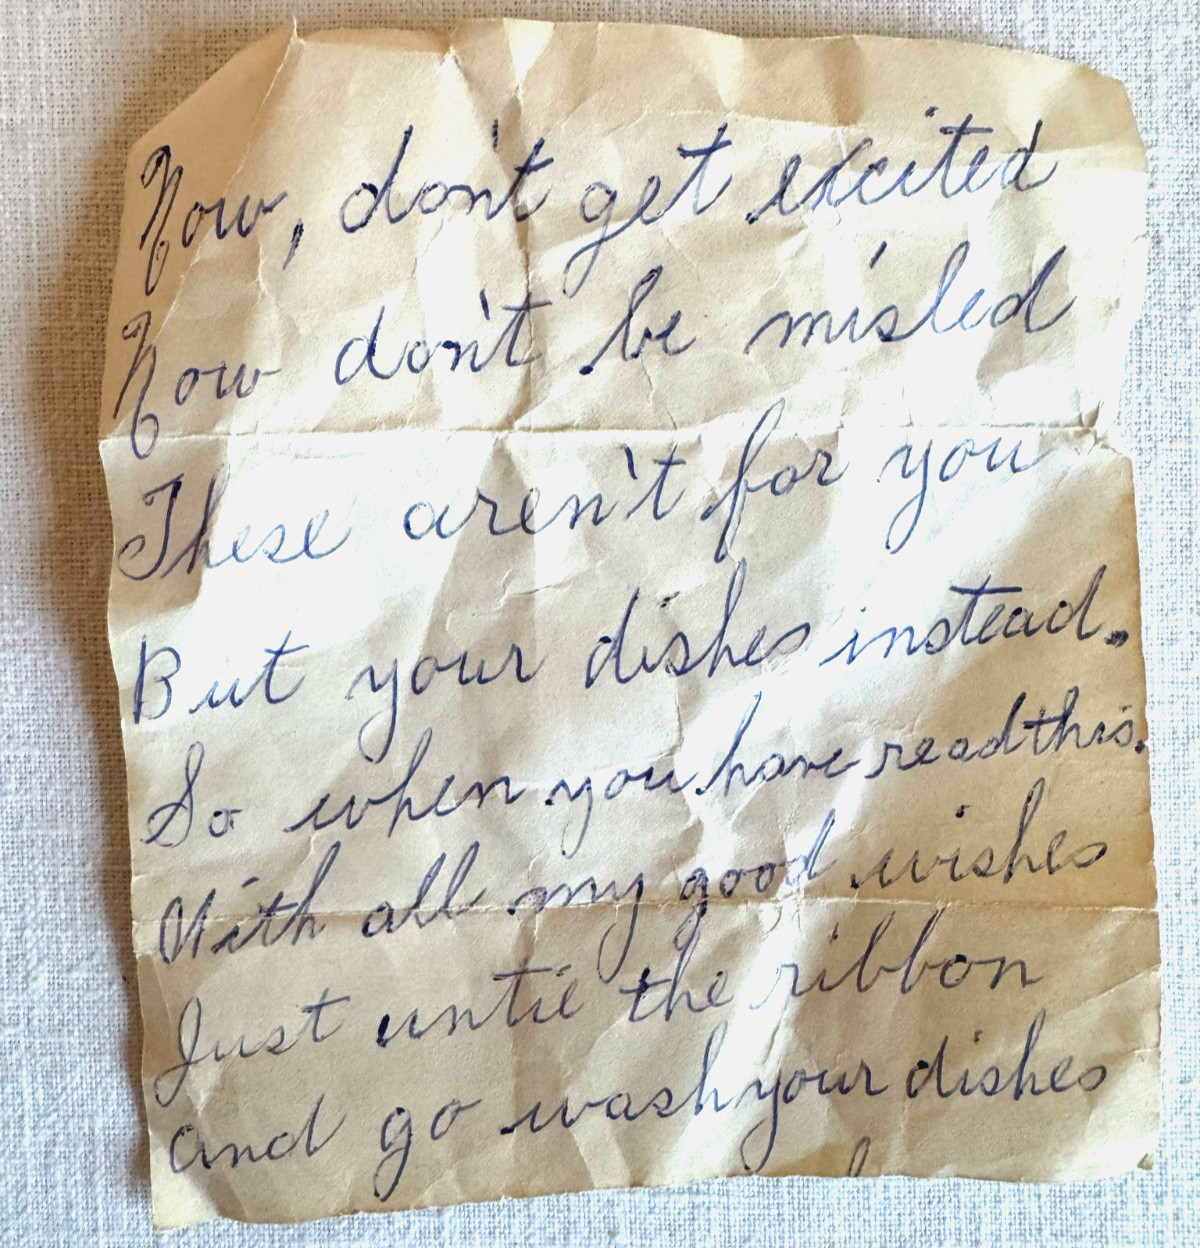 Now, don't get excited
Now don't be misled
These aren't for you
But your dishes instead.
So when you have read this.
With all my good wishes
Just untie the ribbon
And go wash your dishes